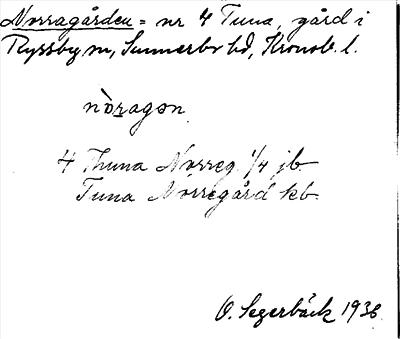 Norragården = nr 4 Tuna, gård i
Ryssby sn, Sunnerbo hd, Kronob. l.
nòragon
4 Thuna Norreg. 1/4 jb.
Tuna Norregård kb.
O. Segerbäck 1936